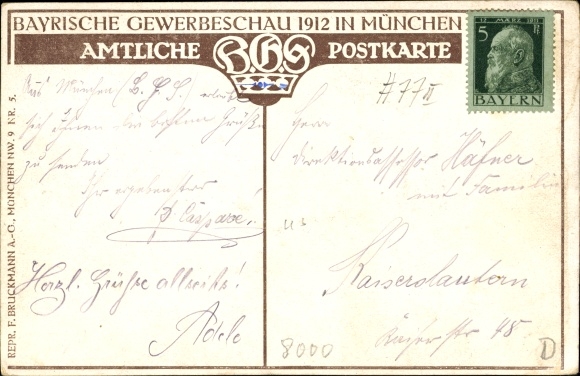 BAYRISCHE GEWERBESCHAU 1912 IN MÜNCHEN
AMTLICHE BGS POSTKARTE
12. MÄRZ 1911
5 Pf
BAYERN
Aus München (B. G. S.) erlaubt
sich Ihnen die besten Grüße
zu senden
Ihr ergebenster
Caspare.
Herzl. Grüsse allseits!
Adele
# 77 II
Herrn
Direktionsassessor Häfner
mit Familie
Kaiserslautern
str 48
8000
D
REPR. F. BRUCKMANN A.-G., MÜNCHEN NW. 9 NR. 5.